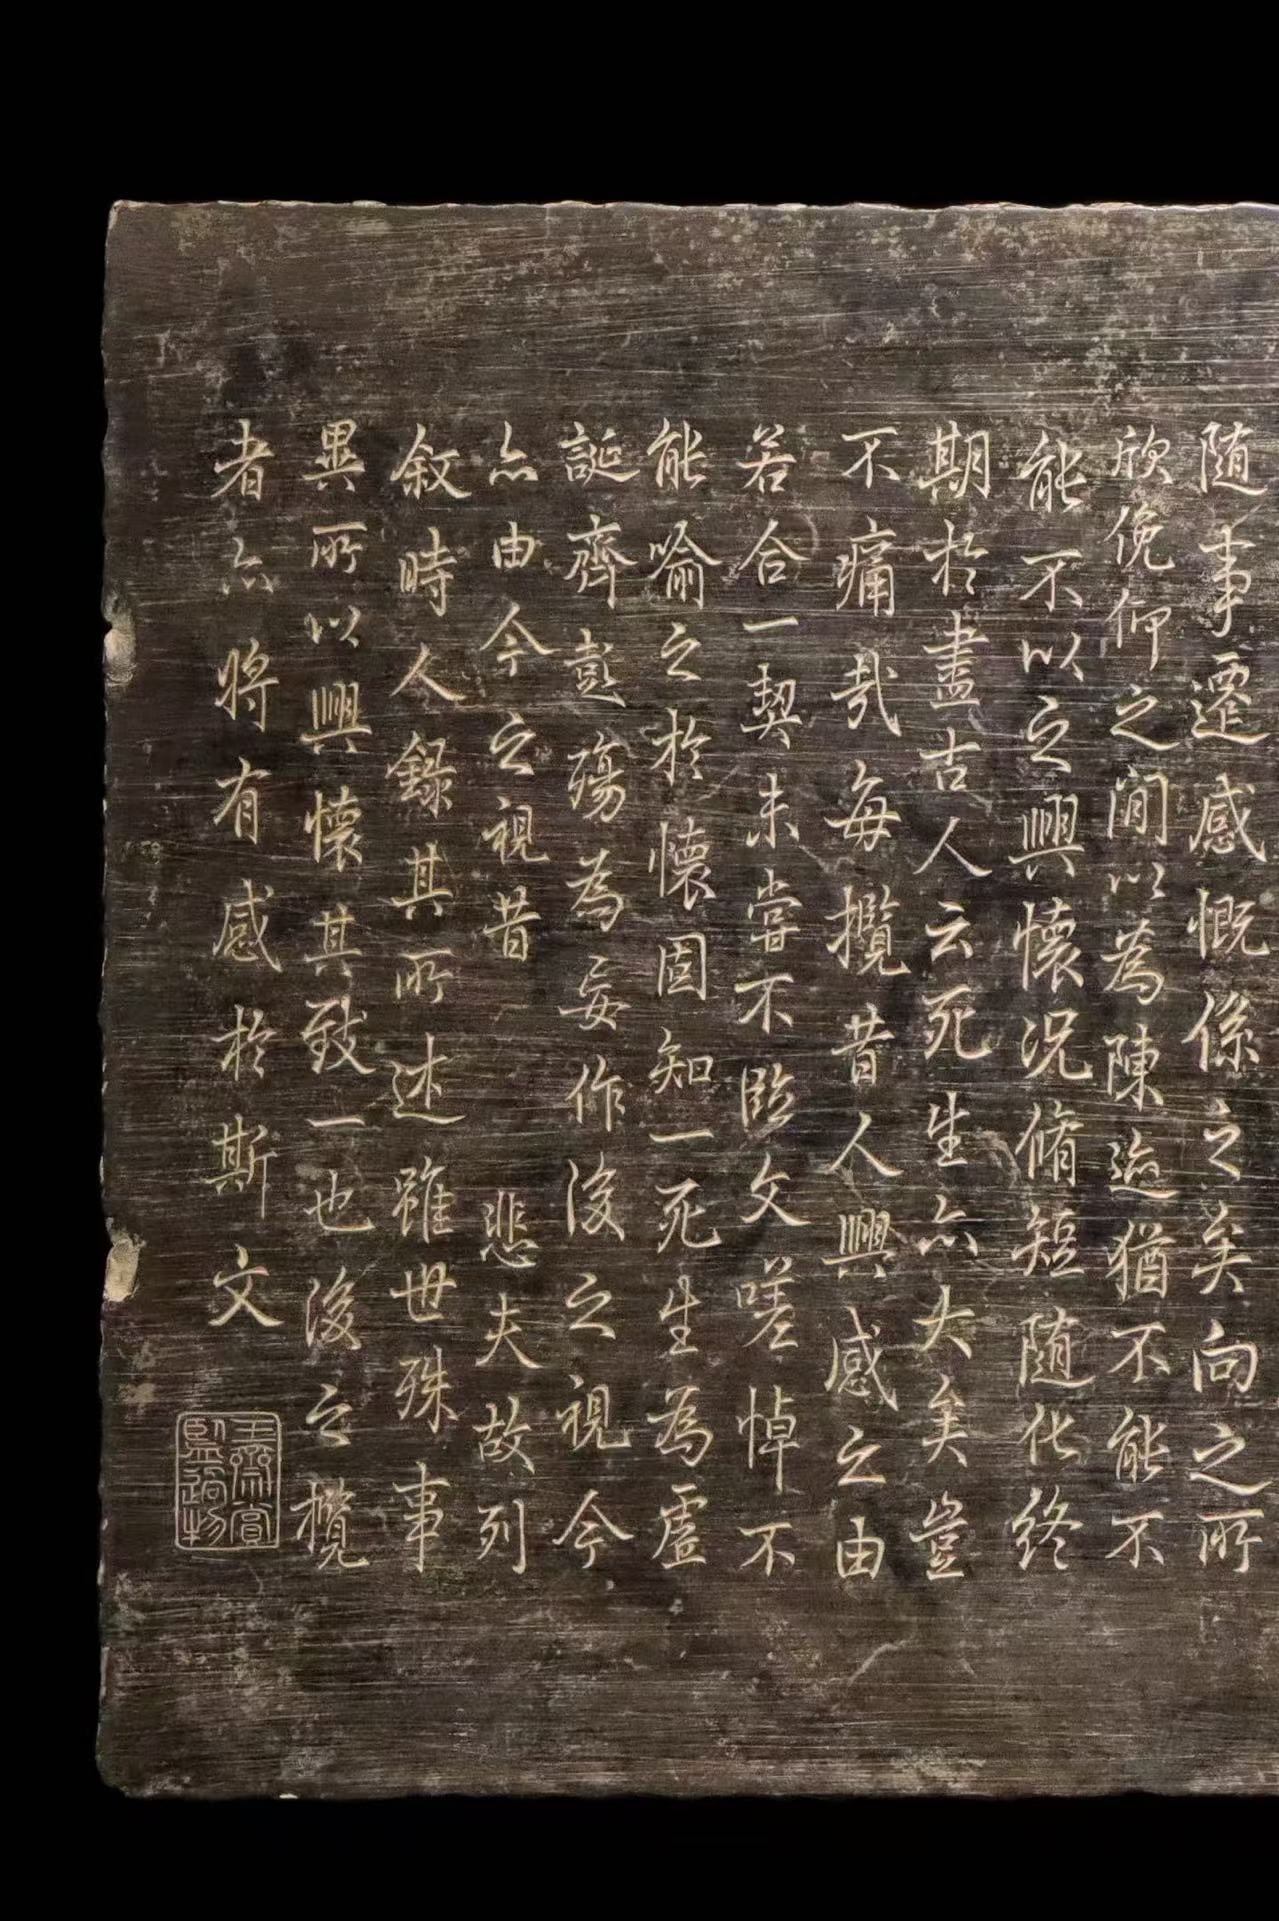 随事遷感慨係之矣向之所
欣俛仰之間以為陳迹猶不能不
能不以之興懷况脩短随化終
期於盡古人云死生亦大矣豈
不痛哉每攬昔人興感之由
若合一契未嘗不臨文嗟悼不
能喻之於懷固知一死生為虛
誕齊彭殤為妄作後之視今
亦由今之視昔 悲夫故列
敘時人錄其所述雖世殊事
異所以興懷其致一也後之攬
者亦將有感於斯文